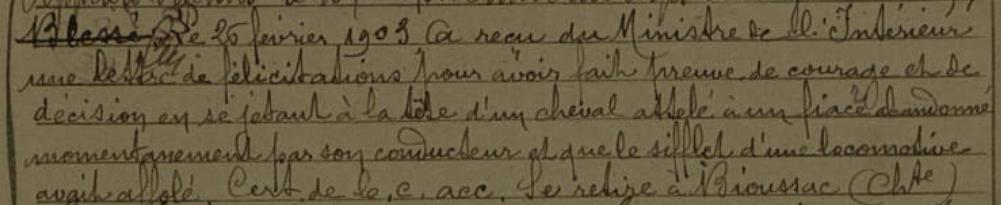 Blessé Le 26 février 1903 (a reçu du Ministre de l'Intérieur
une lettre de félicitations pour avoir fait preuve de courage et de
décision en se jetant à la tête d'un cheval attelé à un fiacre abandonné
momentanement par son conducteur et que le sifflet d'une locomotive
avait affolé. Cert. de b. c. acc. Se retire à Bioussac (Chte)